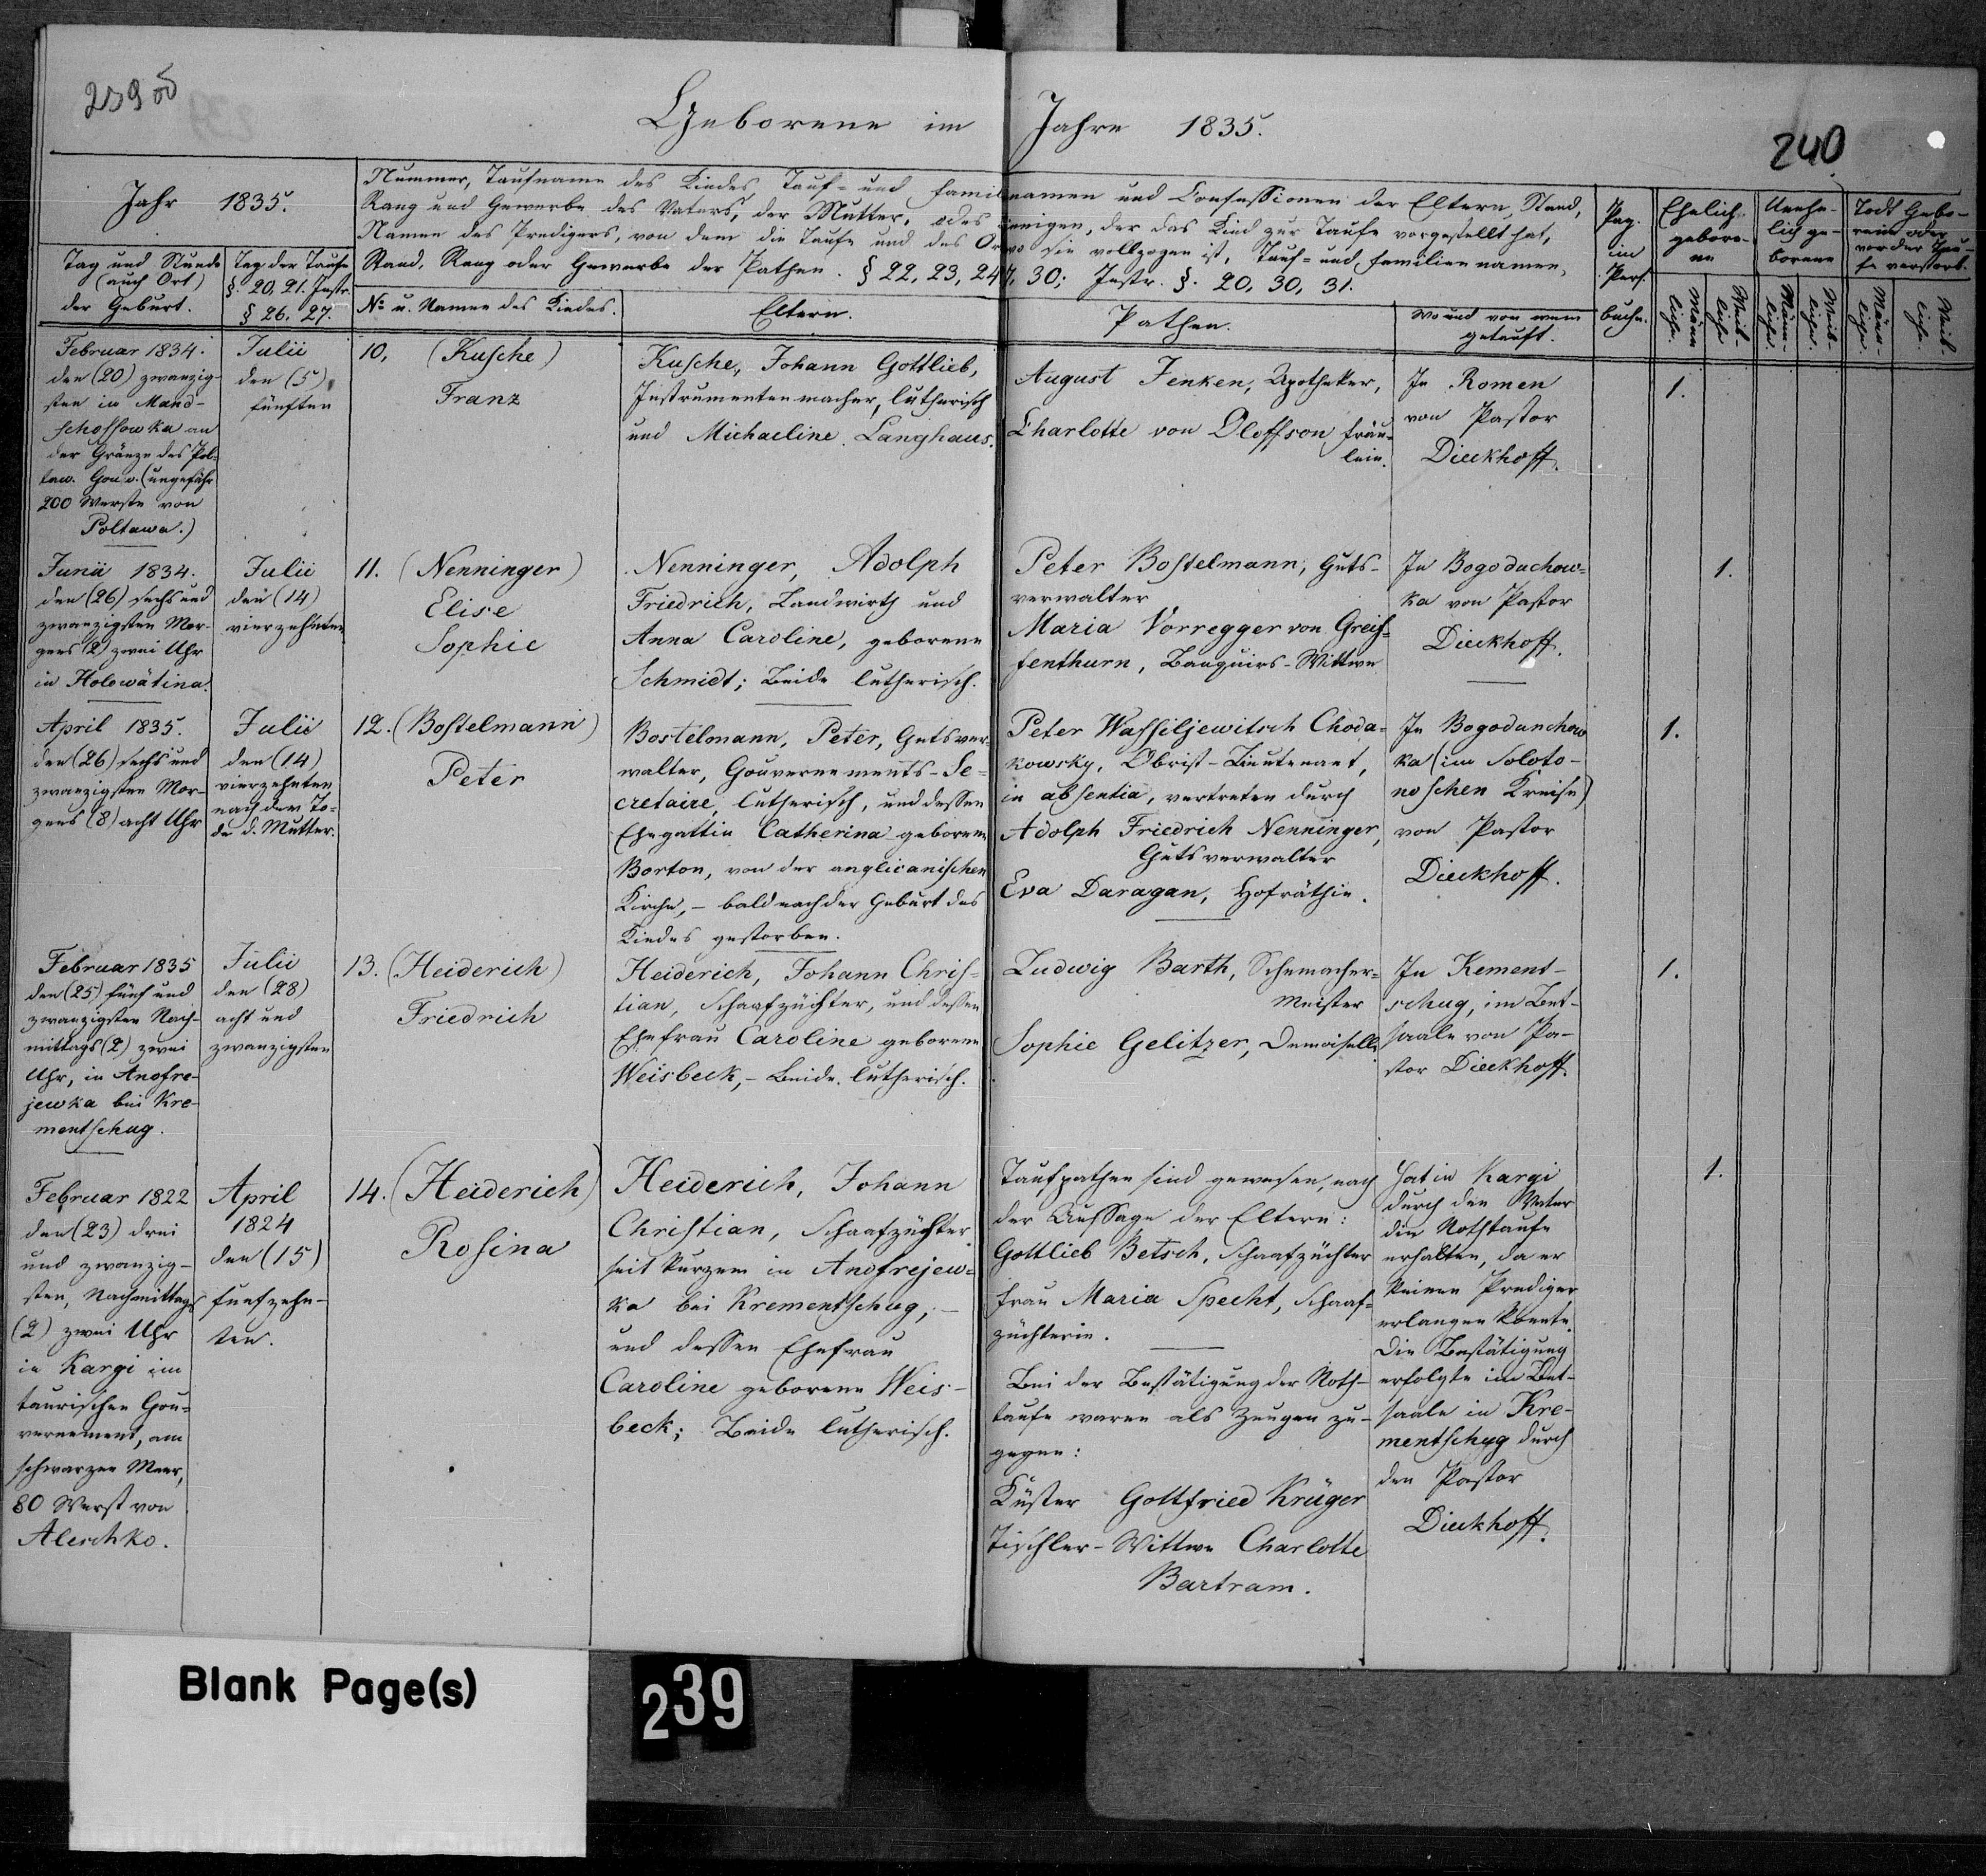 239 об
240
Geborene im Jahre 1835.
Jahr 1835.
Nummer, Taufname des Kindes, Tauf- und Familiennamen und Confessionen der Eltern, Stand,
Rang und Gewerbe des Vaters, der Mutter, oder desjenigen, der das Kind zur Taufe vorgestellt hat,
Namen des Predigers, von dem die Taufe und des Or wo sie vollzogen ist, Tauf- und Familiennamen,
Stand, Rang oder Gewerbe der Pathen. § 22, 23, 24, 30; Instr. §. 20, 30, 31.
Tag und Stunde
(auch Ort)
der Geburt.
Tag der Taufe
§. 20, 21. Instr.
§ 26. 27.
No u. Namen des Kindes.
Eltern.
Pathen.
Wo und von wem
getauft.
Pag.
im
Pers.
buche.
Ehelich
gebore-
ne
Unehe-
lich ge-
borene
Todt Gebo-
rene oder
vor der Tau-
fe verstorb.
Männ-
liche.
Weib-
liche
Männ-
liche.
Weib-
liche.
Männ-
liche.
Weib-
liche.
Februar 1834.
den (20) zwanzig-
sten in Mand-
schossowka an
der Gränze des Pol-
taw. Gouv. (ungefähr
200 Werste von
Poltawa.)
Julii
den (5)
fünften
10. (Kusche)
Franz
Kusche, Johann Gottlieb,
Instrumentenmacher, lutherisch
und Michaeline Langhaus.
August Jenken, Apotheker,
Charlotte von Oloffson Fräu-
lein.
In Romen
von Pastor
Dieckhoff.
1.
Junii 1834.
den (26) sechs und
zwanzigsten Mor-
gens (2) zwei Uhr
in Holowätina.
Julii
den (14)
vierzehnten
11. (Nenninger)
Elise
Sophie
Nenninger, Adolph
Friedrich, Landwirth und
Anna Caroline, geborene
Schmidt; Beide lutherisch.
Peter Bostelmann, Guts-
verwalter
Maria Vorregger von Greif-
fenthurn, Banquiers-Wittwe
In Bogoduchow-
ka von Pastor
Dieckhoff.
1.
April 1835.
den (26) sechs und
zwanzigsten Mor-
gens (8) acht Uhr
Julii
den (14)
vierzehnten
nach dem To-
de d. Mutter.
12. (Bostelmann)
Peter
Bostelmann, Peter, Gutsver-
walter, Gouvernements-Se-
cretaire, lutherisch, und dessen
Ehegattin Catherina geborene
Borton, von der anglicanischen
Kirche, - bald nach der Geburt des
Kindes gestorben.
Peter Wassiljewitsch Choda-
kowsky, Obrist-Lieutenant,
in absentia, vertreten durch
Adolph Friedrich Nenninger,
Gutsverwalter
Eva Daragan, Hofräthin.
In Bogodunchow
ka (im Soloto-
noschen Kreise)
von Pastor
Dieckhoff.
1.
Februar 1835
den (25) fünf und
zwanzigsten Nach-
mittags (2) zwei
Uhr, in Anofre-
jewka bei Kre-
mentschug.
Julii
den (28)
acht und
zwanzigsten
13. (Heiderich)
Friedrich
Heiderich, Johann Chris-
tian, Schaafzüchter, und dessen
Ehefrau Caroline geborene
Weisbeck, - Beide lutherisch.
Ludwig Barth, Schumacher-
Meister
Sophie Gelitzer, Demoiselle
In Kement-
schug, im Bet-
saale von Pa-
stor Dieckhoff.
1.
Februar 1822
den (23) drei
und zwanzig-
sten, Nachmittags
(2) zwei Uhr
in Kargi im
taurischen Gou-
vernement, am
schwarzen Meer,
80 Werst von
Aleschko.
April
1824
den (15)
fünfzehn-
ten.
14. (Heiderich)
Rosina
Heiderich, Johann
Christian, Schaafzüchter
seit kurzem in Anofrejew-
ka bei Krementschug, -
und dessen Ehefrau
Caroline geborene Weis-
beck; Beide lutherisch.
Taufpathen sind gewesen, nach
der Aussage der Eltern:
Gottlieb Betsch, Schaafzüchter
Frau Maria Specht, Schaaf-
züchterin.
Bei der Bestätigung der Noth-
taufe waren als Zeugen zu-
gegen:
Küster Gottfried Krüger
Tischler-Wittwe Charlotte
Bartram.
Hat in Kargi
durch den Vater
die Nothtaufe
erhalten, da er
keinen Prediger
erlangen konnte.
Die Bestätigung
erfolgte im Bet-
saale in Kre-
mentschug durch
den Pastor
Dieckhoff.
1.
Blank Page(s)
239